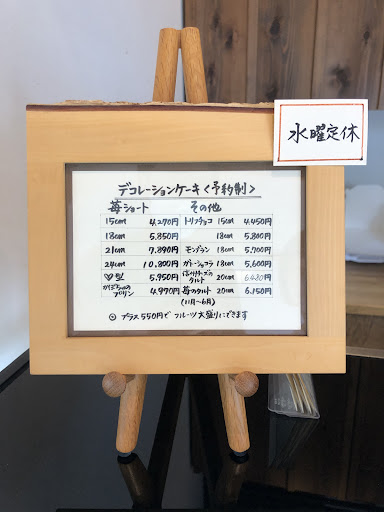 水曜定休
デコレーションケーキ<予約制>
苺ショート その他
15cm 4,270円 トリプルチョコ 15cm 4,450円
18cm 5,350円 18cm 5,800円
21cm 7,890円 モンブラン 18cm 5,700円
24cm 10,800円 ガトーショコラ 18cm 5,600円
♡型 5,950円 タルト 20cm 6,480円
かぼちゃのプリン 4,970円 苺のタルト 20cm 6,150円
(11月〜6月)
◎ プラス550円で フルーツ大盛りにできます